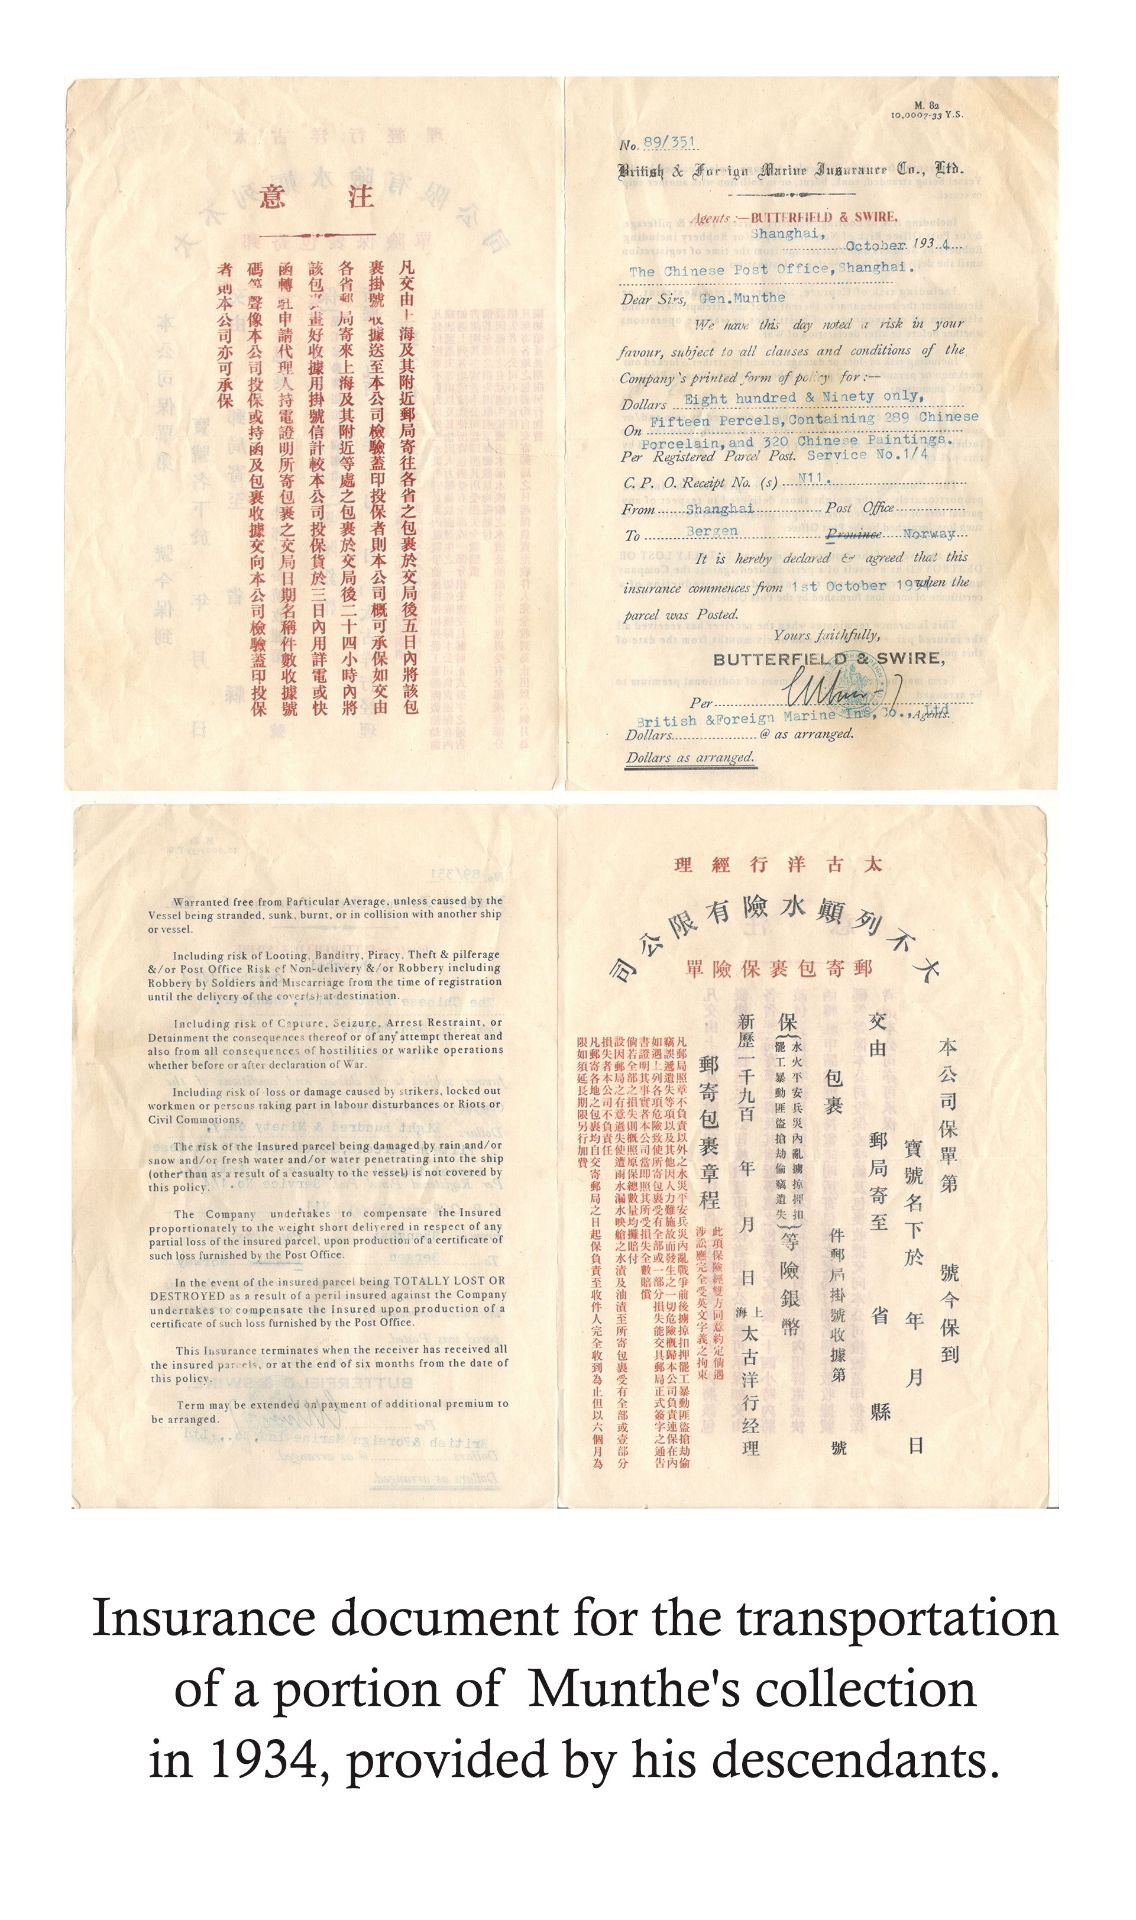 注意
凡交由上海及其附近郵局寄往各省之包裹於交局後五日內將該包
裹掛號收據送至本公司檢驗蓋印投保者則本公司概可承保如交由
各省郵局寄來上海及其附近等處之包裹於交局後二十四小時內將
該包裹畫好收據用掛號信計較本公司投保貨於三日內用詳電或快
函轉駐申請代理人持電證明所寄包裹之交局日期名稱件數收據號
碼等聲像本公司投保或持函及包裹收據交向本公司檢驗蓋印投保
者則本公司亦可承保
M. 82
10.0007-33 Y.S.
No. 89/351
British & Foreign Marine Insurance Co., Ltd.
Agents :—BUTTERFIELD & SWIRE,
Shanghai,
October 1934
The Chinese Post Office,Shanghai.
Dear Sirs, Gen.Munthe
We have this day noted a risk in your
favour, subject to all clauses and conditions of the
Company's printed form of policy for :—
Dollars Eight hundred & Ninety only,
On Fifteen Percels,Containing 289 Chinese
Porcelain,and 320 Chinese Paintings.
Per Registered Parcel Post. Service No.1/4
C. P. O. Receipt No. (s) N11.
From Shanghai Post Office
To Bergen Province Norway
It is hereby declared & agreed that this
insurance commences from 1st October 1934 when the
parcel was Posted.
Yours faithfully,
BUTTERFIELD & SWIRE,
Per
British &Foreign Marine Ins,Co.,Ltd Agents.
Dollars @ as arranged.
Dollars as arranged.
Warranted free from Particular Average, unless caused by the
Vessel being stranded, sunk, burnt, or in collision with another ship
or vessel.
Including risk of Looting, Banditry, Piracy, Theft & pilferage
&/or Post Office Risk of Non-delivery &/or Robbery including
Robbery by Soldiers and Miscarriage from the time of registration
until the delivery of the cover(s) at destination.
Including risk of Capture, Seizure, Arrest Restraint, or
Detainment the consequences thereof or of any attempt thereat and
also from all consequences of hostilities or warlike operations
whether before or after declaration of War.
Including risk of loss or damage caused by strikers, locked out
workmen or persons taking part in labour disturbances or Riots or
Civil Commotions.
The risk of the Insured parcel being damaged by rain and/or
snow and/or fresh water and/or water penetrating into the ship
(other than as a result of a casualty to the vessel) is not covered by
this policy.
The Company undertakes to compensate the Insured
proportionately to the weight short delivered in respect of any
partial loss of the insured parcel, upon production of a certificate of
such loss furnished by the Post Office.
In the event of the insured parcel being TOTALLY LOST OR
DESTROYED as a result of a peril insured against the Company
undertakes to compensate the Insured upon production of a
certificate of such loss furnished by the Post Office.
This Insurance terminates when the receiver has received all
the insured parcels, or at the end of six months from the date of
this policy.
Term may be extended on payment of additional premium to
be arranged.
太古洋行經理
大不列顛水險有限公司
郵寄包裹保險單
本公司保單第 號今保到
寶號名下於 年 月 日
交由 郵局寄至 省 縣
包裹 件郵局掛號收據第 號
保
水火平安兵災內亂擄掠押扣
罷工暴動匪盜搶劫偷竊遺失
等險銀幣
新歷一千九百 年 月 日
上海
太古洋行经理
郵寄包裹章程
此項保險經雙方同意約定倘遇
涉訟應完全受英文字義之拘束
凡郵局照章不負責以外之水災平安兵災內亂戰爭前後擄掠扣押罷工暴動匪盜搶劫偷
竊誤遞遺失等項以及其他因人力難施故而發生之一切危險概歸本公司負責連保在內
如遇上列各項危險致使所寄包裹受有全部或一部分損失能交具郵局正式簽字之通告
書證明其事實者本公司當即照其所受損失全數賠償
倘若全部之損失則概照原保總數量均攤賠付
設因郵局之有意過失使遭雨水漏水映艙之水漬及油漬至所寄包裹受有全部或壹部分
損失者本公司不負責任
凡郵寄各地之包裹均自交寄郵局之日起保負責至收件人完全收到為止但以六個月為
限如須延長期限另行加費
Insurance document for the transportation
of a portion of Munthe's collection
in 1934, provided by his descendants.